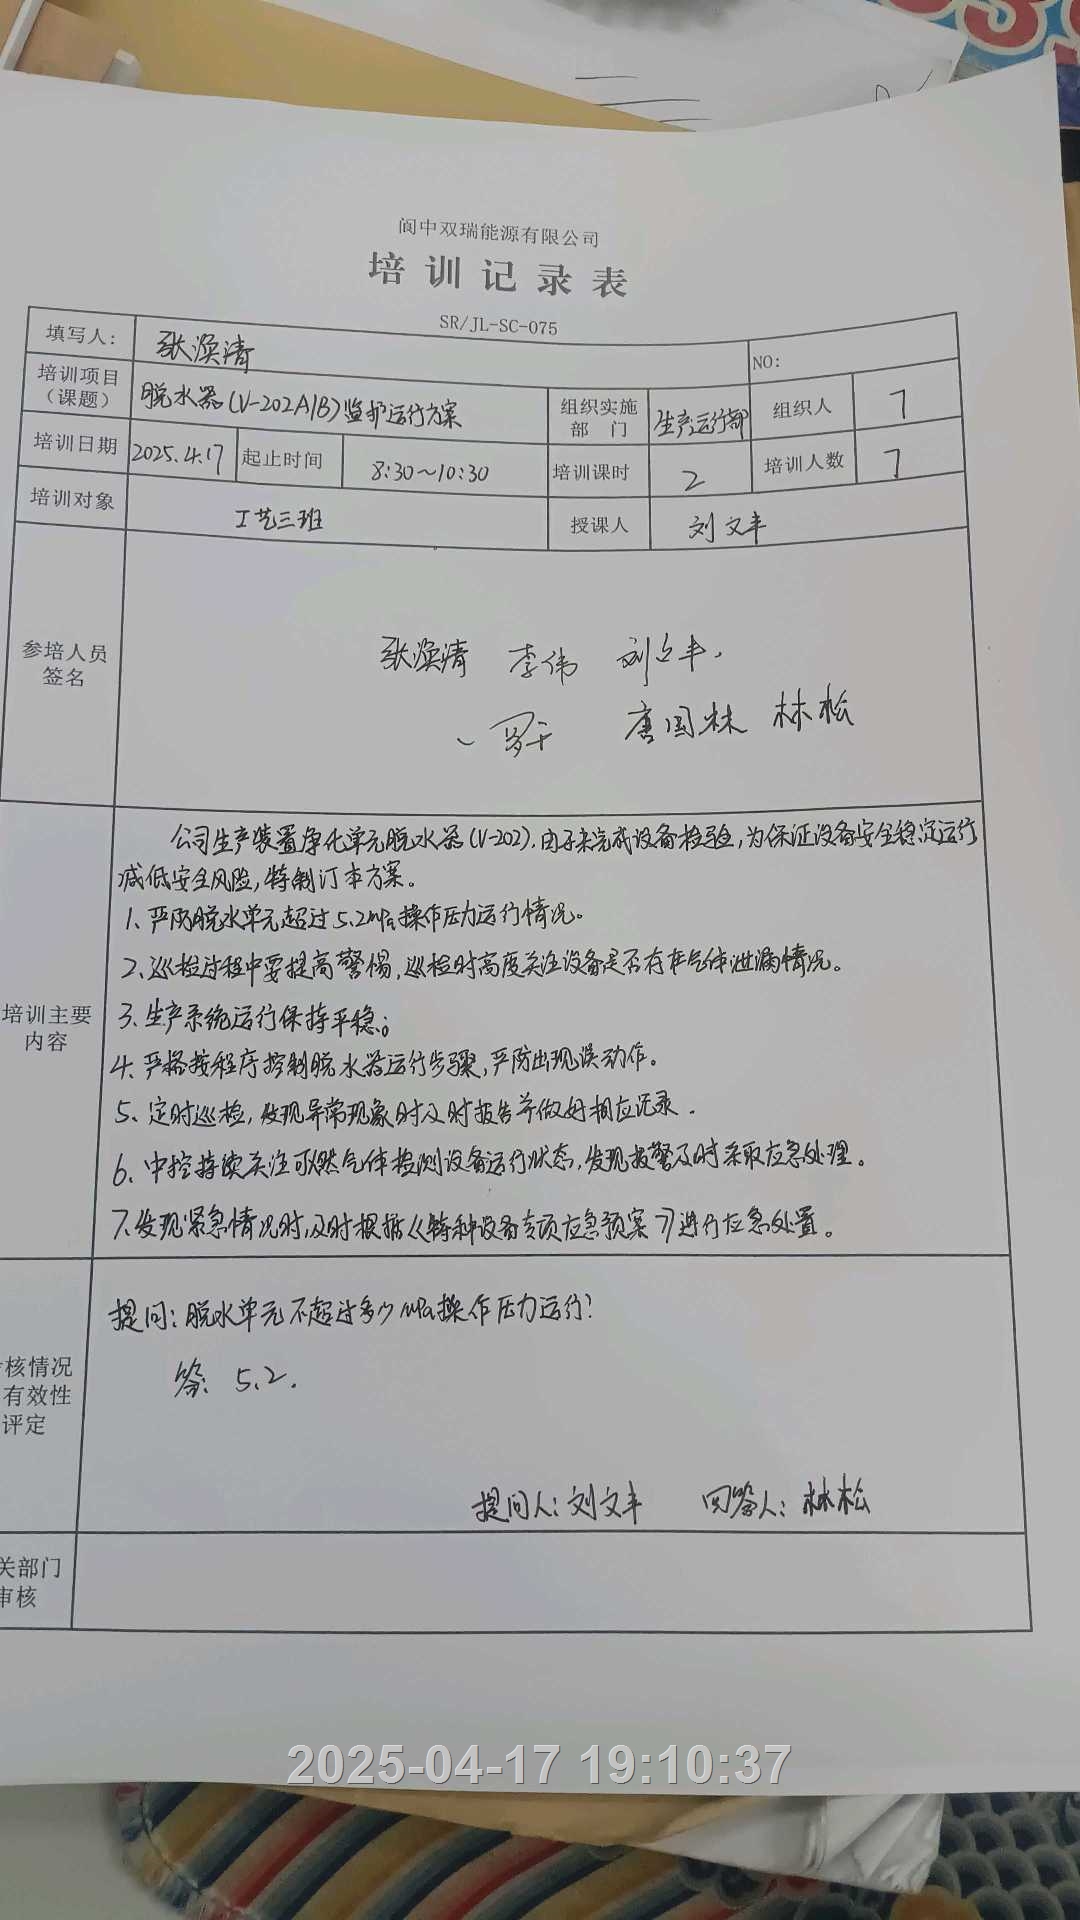 阆中双瑞能源有限公司
培训记录表
SR/JL-SC-075
填写人: 张涣清 NO:
培训项目（课题） 脱水器(V-202A/B)监护运行方案 组织实施部门 生产运行部 组织人 7
培训日期 2025.4.17 起止时间 8:30～10:30 培训课时 2 培训人数 7
培训对象 工艺三班 授课人 刘文丰
参培人员签名
张涣清 李伟 刘文丰.
唐国林 林松
培训主要内容
公司生产装置净化单元脱水器(V-202),由于未完成设备检验,为保证设备安全稳定运行
减低安全风险,特制订本方案。
1、严防脱水单元超过5.2MPa操作压力运行情况。
2、巡检过程中要提高警惕,巡检时高度关注设备是否存在气体泄漏情况。
3、生产系统运行保持平稳;
4、严格按程序控制脱水器运行步骤,严防出现误动作。
5、定时巡检,发现异常现象时及时报告并做好相应记录.
6、中控持续关注可燃气体检测设备运行状态,发现报警及时采取应急处理。
7、发现紧急情况时,及时根据《特种设备专项应急预案》进行应急处置。
核情况
有效性
评定
提问:脱水单元不超过多少MPa操作压力运行?
答: 5.2.
提问人:刘文丰 回答人:林松
关部门
审核
2025-04-17 19:10:37